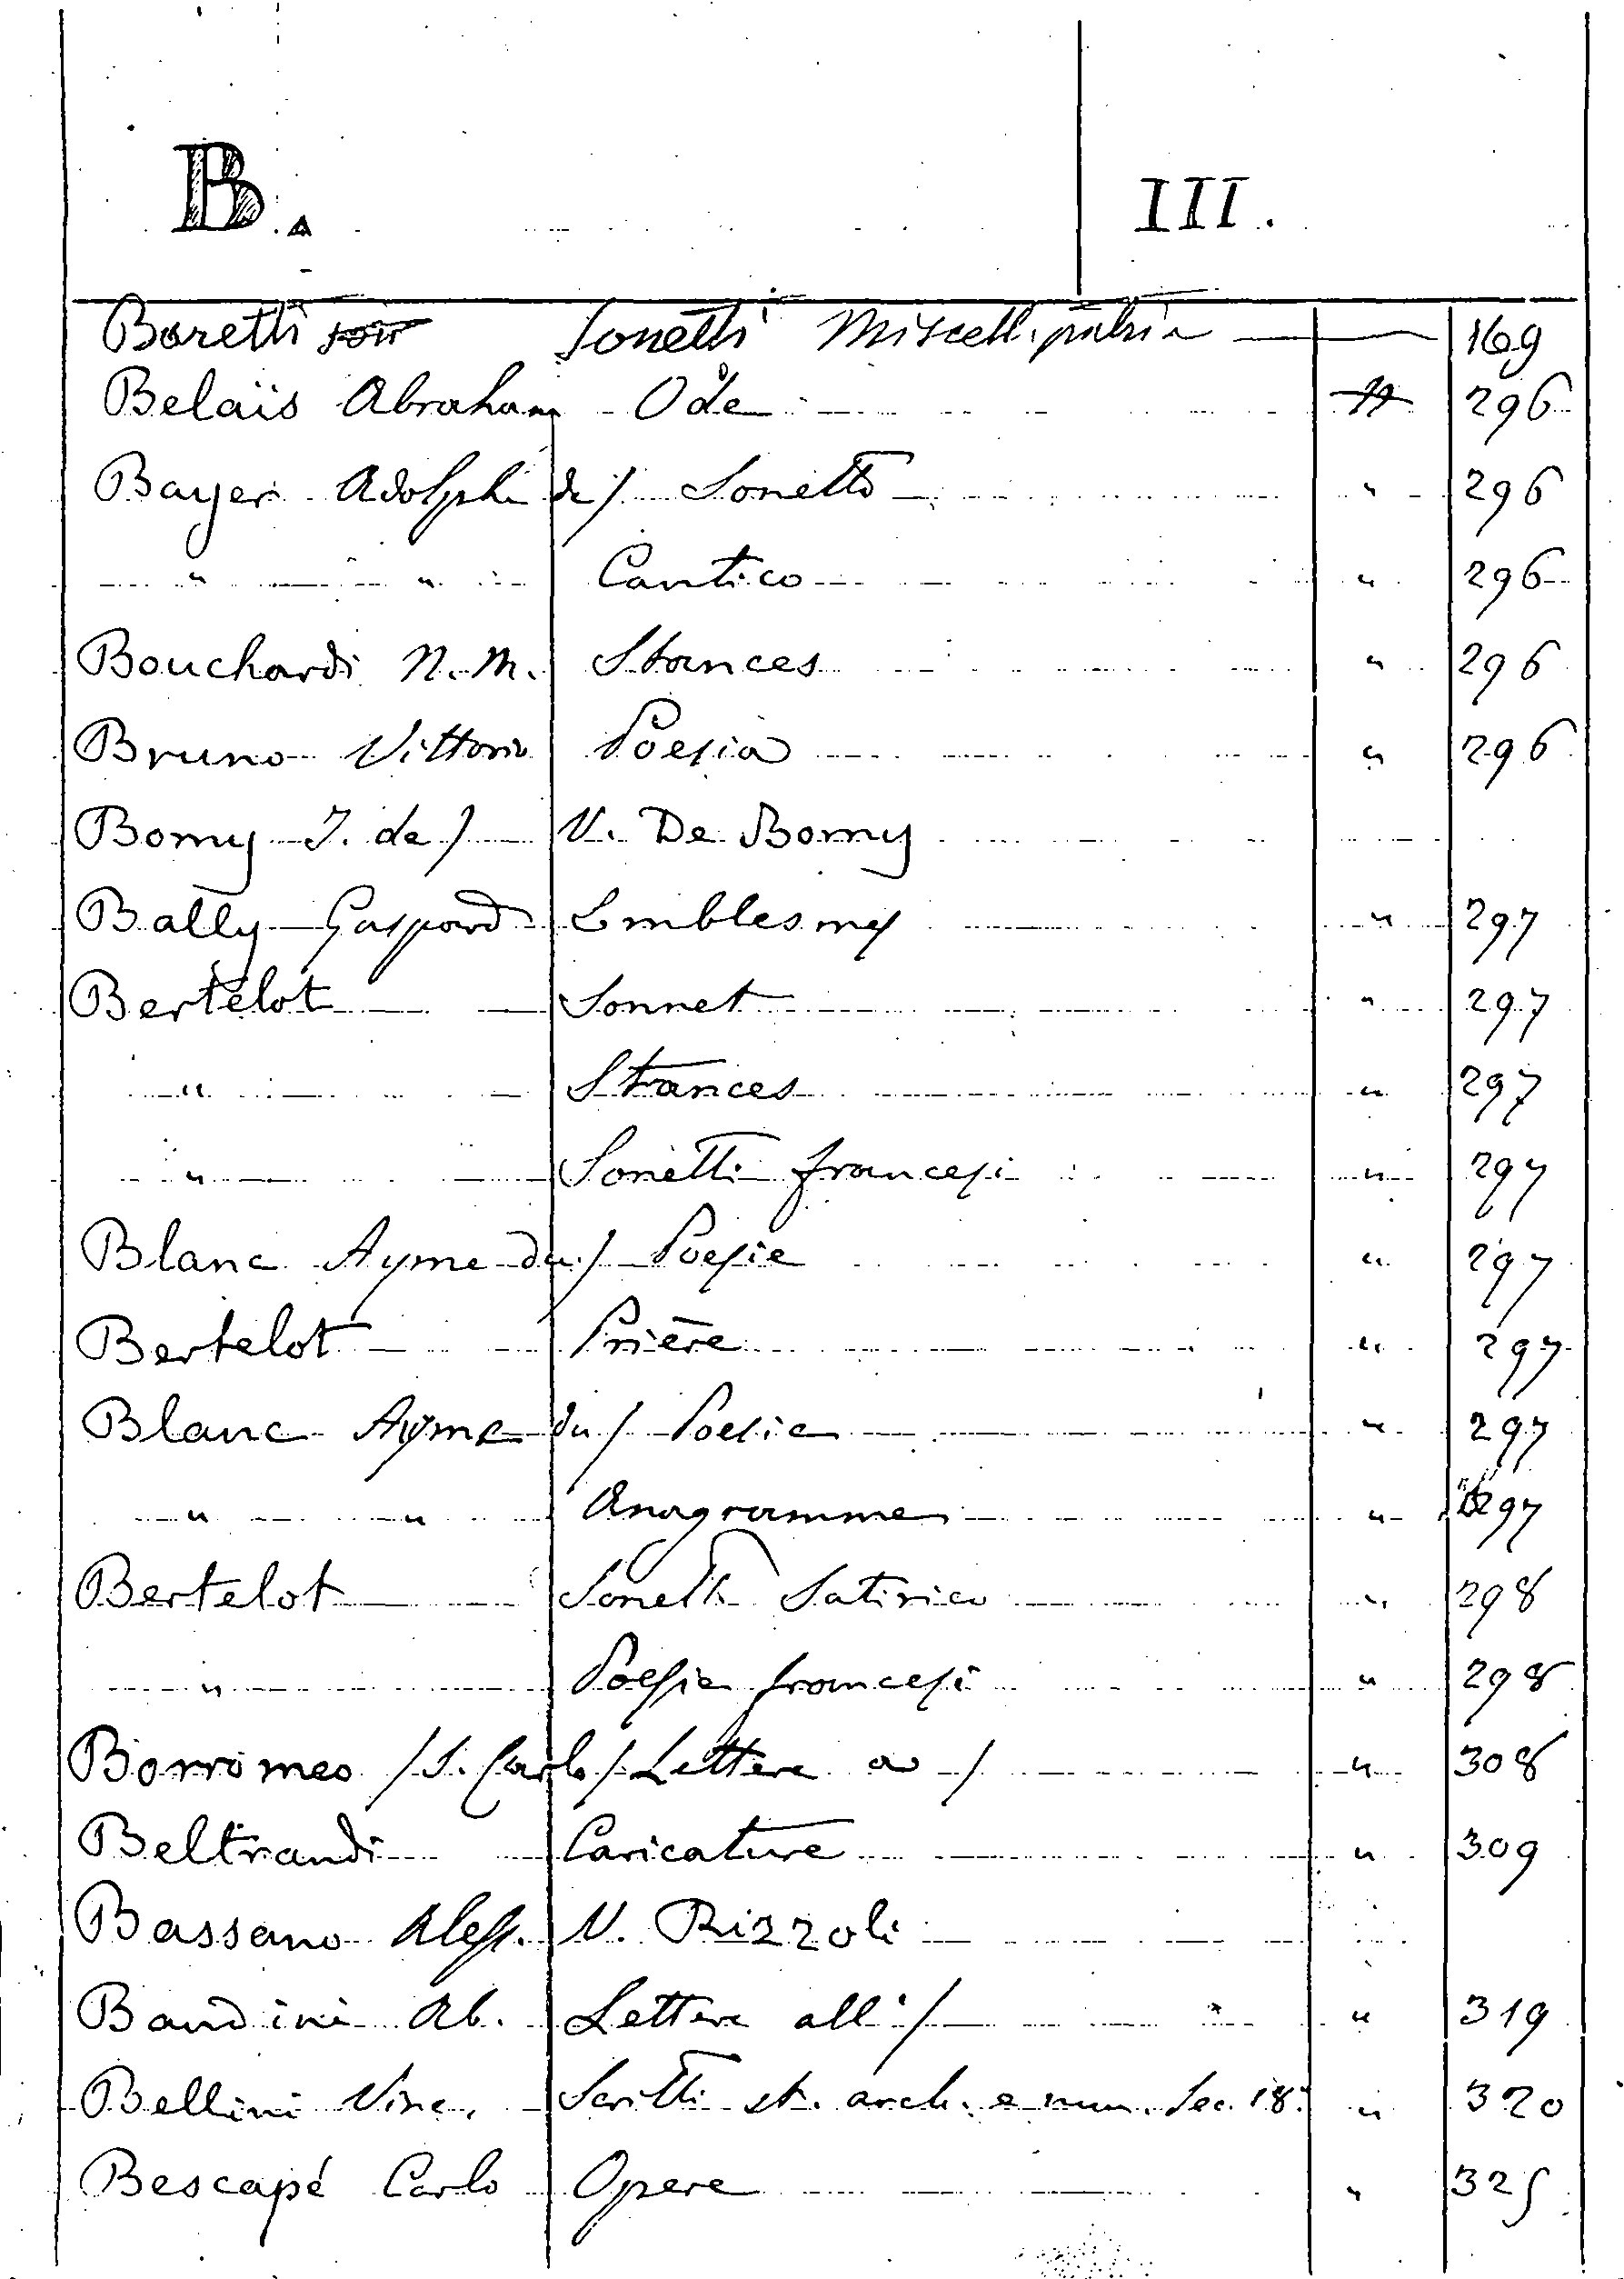 B. III.
Baretti Sonetti Miscell. patria 169
Belaïs Abraham Ode " 296
Bayer Adolphe de / Sonetto " 296
" " Cantico " 296
Bouchardi N. M. Stances " 296
Bruno Vittorio Poesia " 296
Bomy J. de / V. De Bomy
Bally Gaspard Emblesmes " 297
Bertelot Sonnet " 297
" Stances " 297
" Sonetti francesi " 297
Blanc Ayme du / Poesie " 297
Bertelot Prière " 297
Blanc Ayme du / Poesie " 297
" " Anagramme " 297
Bertelot Sonetto Satirico " 298
" Poesie francesi " 298
Borromeo / S. Carlo / Lettere a / " 308
Beltrandi Caricature " 309
Bassano Aless. V. Rizzoli
Bandini Ab. Lettere all' / " 319
Bellini Vinc. Scritti st. arch. e num. Sec. 18. " 320
Bescapé Carlo Opere " 325